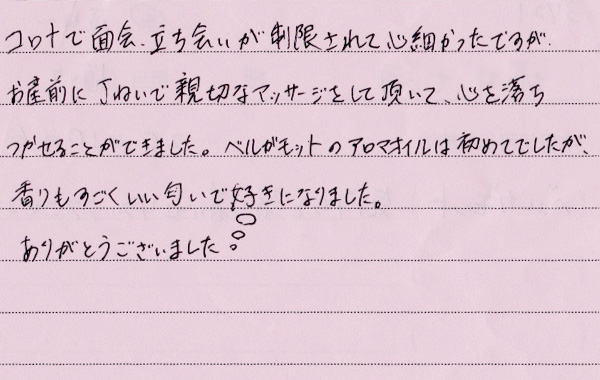 コロナで面会、立ち会いが制限されて心細かったですが、
お産前に丁ねいで親切なマッサージをして頂いて、心を落ち
つかせることができました。ベルガモットのアロマオイルは初めてでしたが、
香りもすごくいい匂いで好きになりました。
ありがとうございました